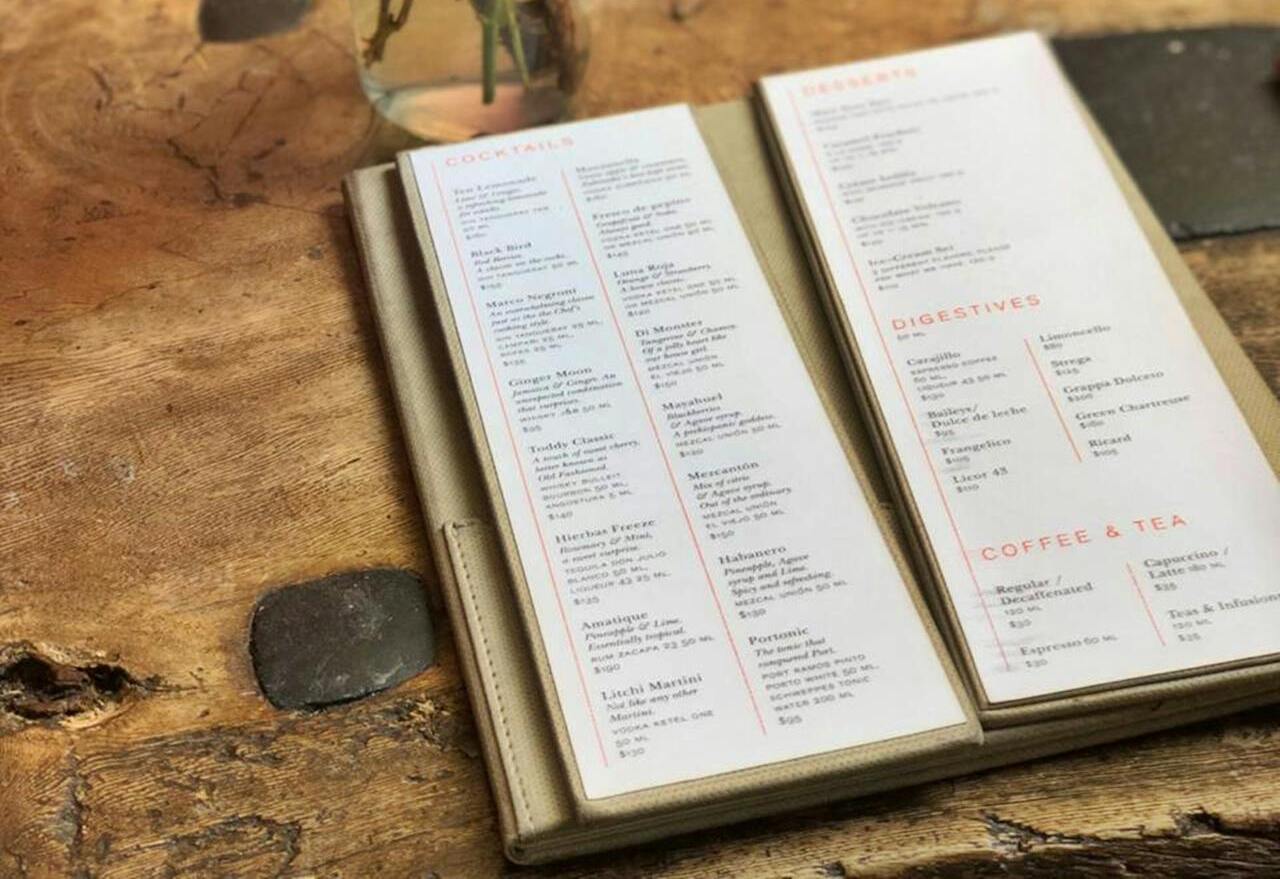 COCKTAILS
Ten Lemonade
Lime & Ginger,
a refreshing lemonade
for adults.
GIN TANQUERAY TEN
50 ML
Black Bird
Red Berries.
A classic on the rocks.
GIN TANQUERAY 50 ML
$150
Marco Negroni
An overwhelming classic
just as the the Chef's
cooking style.
GIN TANQUERAY 25 ML,
CAMPARI 25 ML,
25 ML.
Ginger Moon
Jamaica & Ginger. An
unexpected combination
that surprises.
WHISKY J&B 50 ML
$95
Toddy Classic
A touch of sweet cherry,
better known as
Old Fashioned.
WHISKY BULLEIT
BOURBON 50 ML,
ANGOSTURA 5 ML
$140
Hierbas Freeze
Rosemary & Mint,
a sweet surprise.
TEQUILA DON JULIO
BLANCO 50 ML,
LIQUEUR 43 25 ML.
$125
Amatique
Pineapple & Lime.
Essentially tropical.
RUM ZACAPA 23 50 ML
$190
Litchi Martini
Not like any other
Martini.
VODKA KETEL ONE
50 ML
$130
Manzanella
Fresco de pepino
Grapefruit & Soda.
Always good.
VODKA KETEL ONE 50 ML
OR MEZCAL UNIÓN 50 ML
Luna Roja
Orange & Strawberry.
A house classic.
VODKA KETEL ONE 50 ML
OR MEZCAL UNIÓN 50 ML
$120
Di Monster
Tangerine & Chamoy.
Of a jolly heart like
our house girl.
MEZCAL UNIÓN
EL VIEJO 50 ML
$150
Mayahuel
Blackberries
& Agave syrup.
A prehispanic goddess.
MEZCAL UNIÓN 50 ML
$120
Mezcantón
Mix of citric
& Agave syrup.
Out of the ordinary.
MEZCAL UNIÓN
EL VIEJO 50 ML
$150
Habanero
Pineapple, Agave
syrup and Lime.
Spicy and refreshing.
MEZCAL UNIÓN 50 ML
$130
Portonic
The tonic that
conquered Port.
PORT RAMOS PINTO
PORTO WHITE 50 ML,
SCHWEPPES TONIC
WATER 200 ML
$95
DESSERTS
Chocolate Volcano
Ice-Cream Set
3 DIFFERENT FLAVORS, PLEASE
ASK WHAT WE HAVE. 120 G
DIGESTIVES
50 ML
Carajillo
ESPRESSO COFFEE
60 ML,
LIQUEUR 43 50 ML
$130
Baileys/
Dulce de leche
$95
Frangelico
$105
Licor 43
$110
Limoncello
$80
Strega
$125
Grappa Dolceso
$200
Green Chartreuse
$180
Ricard
$105
COFFEE & TEA
Regular /
Decaffeinated
120 ML
$30
Espresso 60 ML
$30
Capuccino /
Latte 180 ML
$35
Teas & Infusion
120 ML
$35